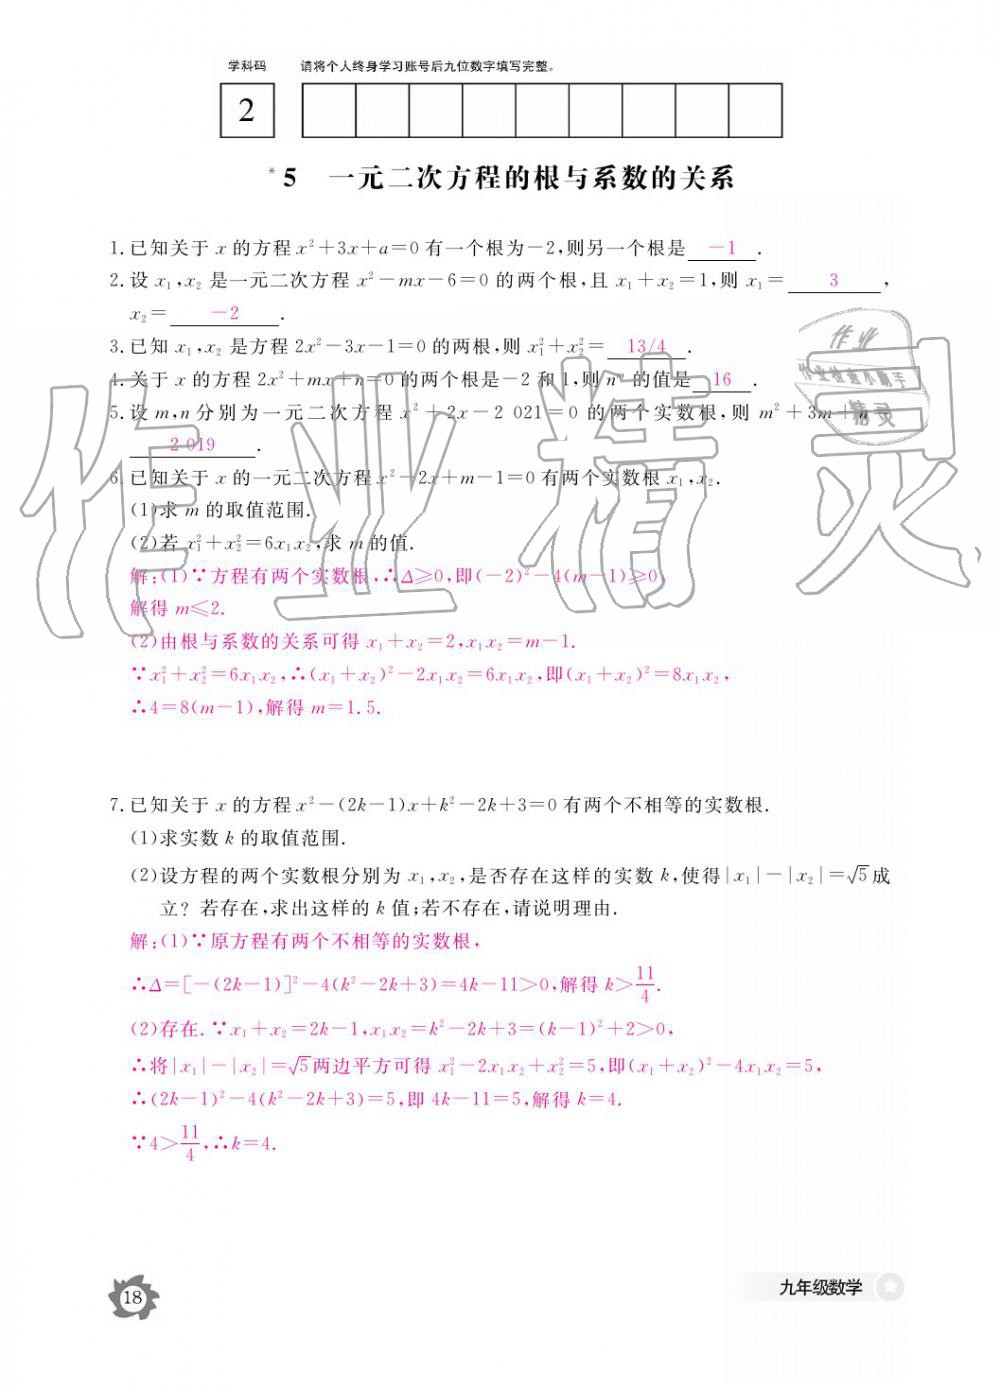 学科码 请将个人终身学习账号后九位数字填写完整。
2
*5 一元二次方程的根与系数的关系
1.已知关于 x 的方程 x²+3x+a=0 有一个根为-2,则另一个根是 -1 .
2.设 x₁,x₂ 是一元二次方程 x²-mx-6=0 的两个根,且 x₁+x₂=1,则 x₁= 3 ,
x₂= -2 .
3.已知 x₁,x₂ 是方程 2x²-3x-1=0 的两根,则 x₁²+x₂²= 13/4 .
4.关于 x 的方程 2x²+mx+n=0 的两个根是-2 和 1,则 nᵐ 的值是 16 .
5.设 m,n 分别为一元二次方程 x²+2x-2 021=0 的两个实数根,则 m²+3m+n=
2 019 .
6.已知关于 x 的一元二次方程 x²-2x+m-1=0 有两个实数根 x₁,x₂.
(1)求 m 的取值范围.
(2)若 x₁²+x₂²=6x₁x₂,求 m 的值.
解:(1)∵方程有两个实数根,∴Δ≥0,即(-2)²-4(m-1)≥0,
解得 m≤2.
(2)由根与系数的关系可得 x₁+x₂=2,x₁x₂=m-1.
∵x₁²+x₂²=6x₁x₂,∴(x₁+x₂)²-2x₁x₂=6x₁x₂,即(x₁+x₂)²=8x₁x₂,
∴4=8(m-1),解得 m=1.5.
7.已知关于 x 的方程 x²-(2k-1)x+k²-2k+3=0 有两个不相等的实数根.
(1)求实数 k 的取值范围.
(2)设方程的两个实数根分别为 x₁,x₂,是否存在这样的实数 k,使得|x₁|-|x₂|=√5成
立？若存在,求出这样的 k 值;若不存在,请说明理由.
解:(1)∵原方程有两个不相等的实数根,
∴Δ=[-(2k-1)]²-4(k²-2k+3)=4k-11>0,解得 k>11/4.
(2)存在.∵x₁+x₂=2k-1,x₁x₂=k²-2k+3=(k-1)²+2>0,
∴将|x₁|-|x₂|=√5两边平方可得 x₁²-2x₁x₂+x₂²=5,即(x₁+x₂)²-4x₁x₂=5,
∴(2k-1)²-4(k²-2k+3)=5,即 4k-11=5,解得 k=4.
∵4>11/4,∴k=4.
18
九年级数学
作业精灵
作业
作业检查小助手
精灵